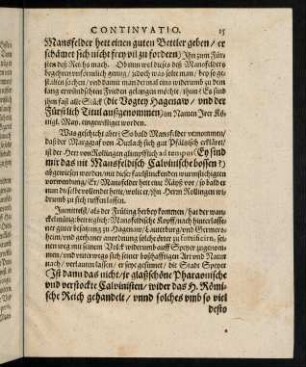 CONTINVATIO. 15
Mansfelder hett einen guten Bettler geben / er
schämet sich nicht frey vil zu fordern) Ihn zum Für
sten deß Reichs mach. Ob nun wol dieses deß Mansfelders
begehren unfürmlich gnug / jedoch was solte man / bey so ge-
stalten sachen / und damit man dermal eins widerumb zu dem
lang erwündschten Frieden gelangen möchte / thun? Es sind
ihm fast alle Stück (die Vogtey Hagenaw / vnd der
Fürstlich Titul außgenommen) im Namen Irer Kö-
nigl. May. eingewilliget worden.
Was geschicht aber? So bald Mansfelder vernommen /
daß der Marggraf von Durlach sich gut Pfältzisch erklärt /
ist der Herr von Rollingen glimpfflich ad tempus (Ey sind
mit das nit Mansfeldisch Calvinische bossen?)
abgewisen worden / mit dieser faulstinckenden
verwendung / Er / Mansfelder hett eine Räyß vor / so bald er
nun dieselbe vollendet hette / wolte er / ihn Herrn Rollingen wi-
derumb zu sich ruffen lassen.
Immittelst / als der Früling herbey kommen / hat der wan-
ckelmütig
guter besatzung zu Hagenaw / Lauterburg / und Germers-
heim / und
seits weg mit seinem Volck widerumb auff Speyer zugenom-
men / und unterwegs sich seiner boßhafftigen Art und Natur
nach / verlauten lassen / er seye gesinnet / die Statt Speyer
(Ist dann das nicht / je glaßschöne Pharaonische
und verstockte Calvinisten / wider das H. Römi-
sche Reich gehandelt / vnnd solches vmb so viel
desto